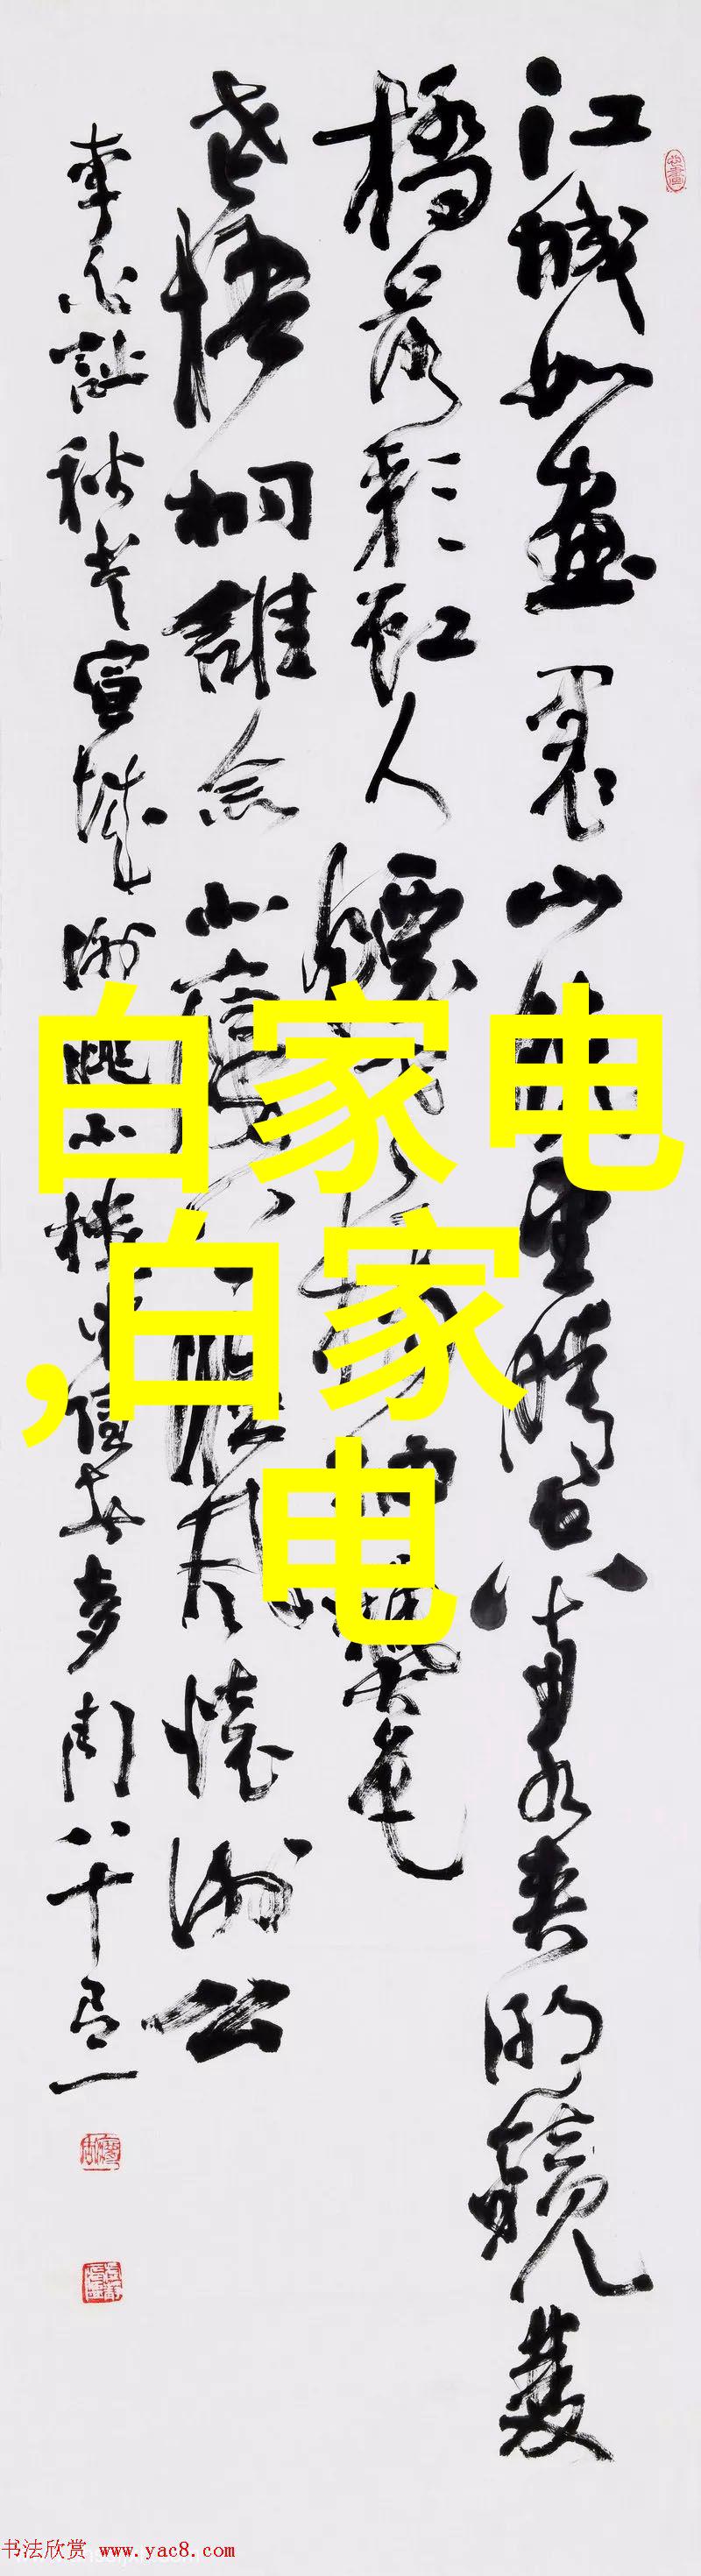 江城如畫裏山曉望晴空兩水夾明鏡雙
橋落彩虹人煙寒橘柚秋色
老梧桐誰念北樓上臨風懷謝公
李白詩秋登宣城謝朓北樓
白家电
,白家
电
书法欣赏 www.yac8.com